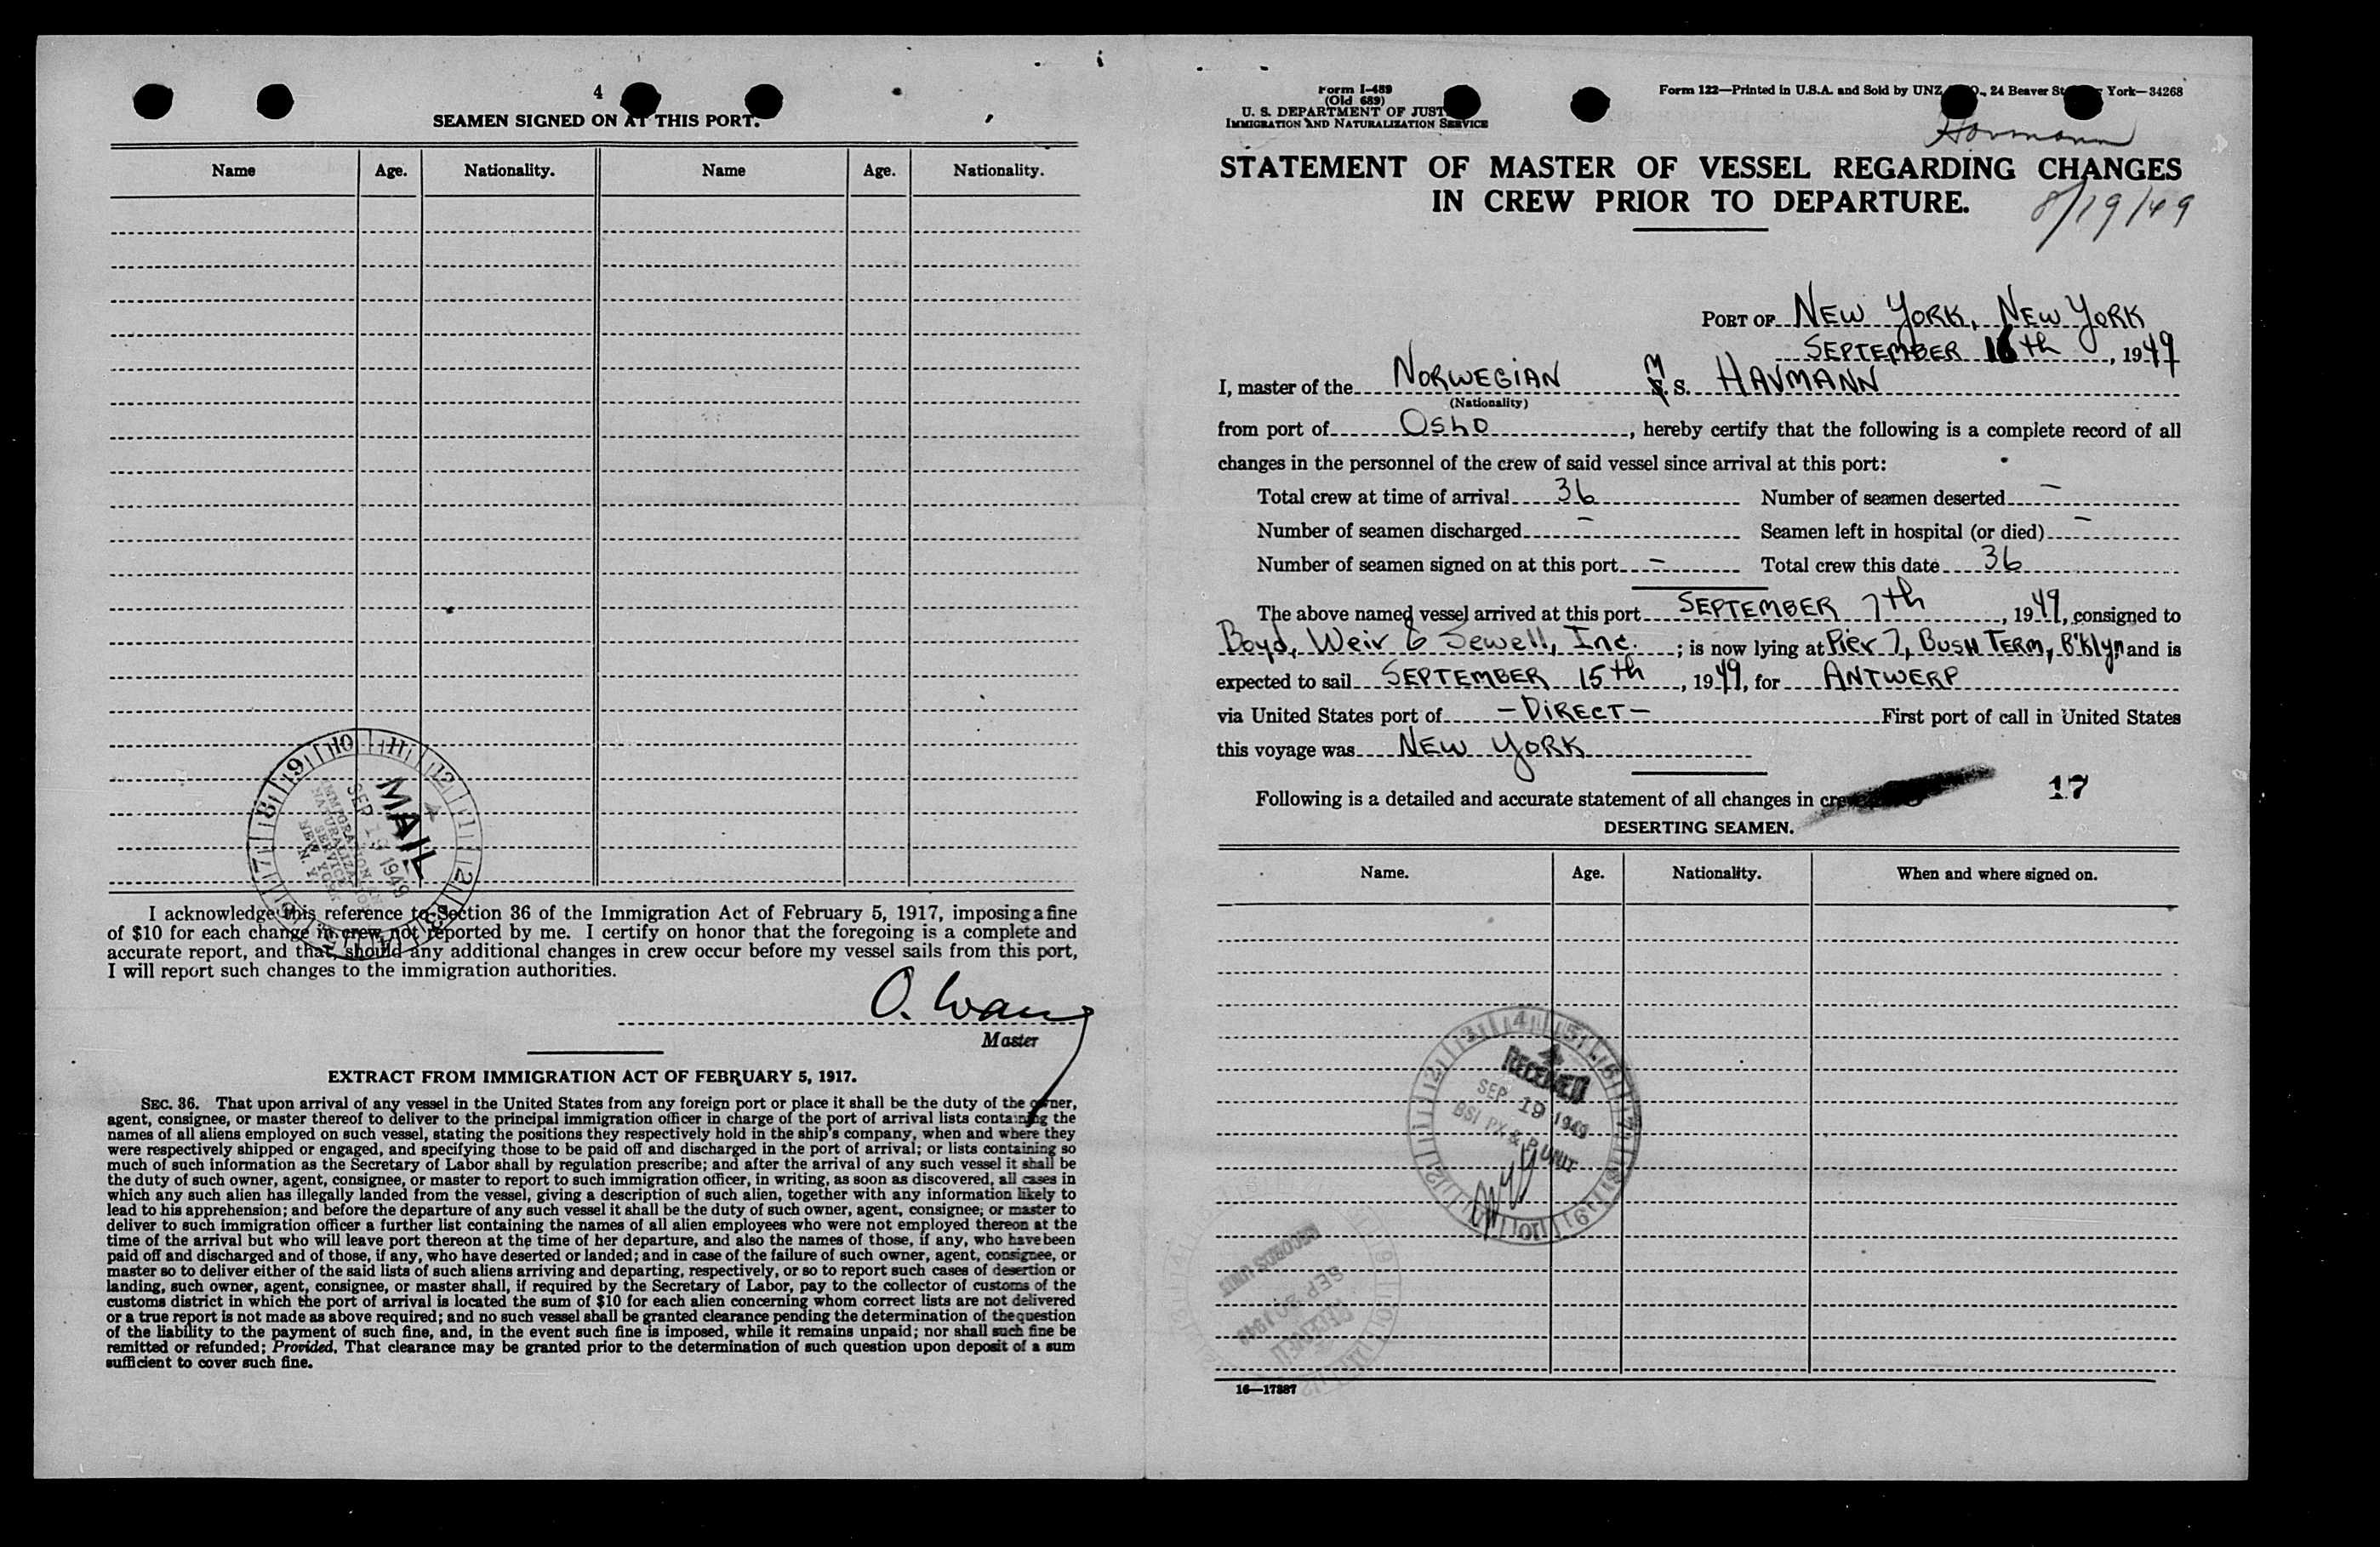 4
SEAMEN SIGNED ON AT THIS PORT.
Name Age. Nationality. Name Age. Nationality.
MAIL
SEP 19 1949
IMMIGRATION AND
NATURALIZATION
SERVICE
NEW YORK
N. Y.
I acknowledge this reference to Section 36 of the Immigration Act of February 5, 1917, imposing a fine
of $10 for each change in crew not reported by me. I certify on honor that the foregoing is a complete and
accurate report, and that, should any additional changes in crew occur before my vessel sails from this port,
I will report such changes to the immigration authorities.
O.
Master
EXTRACT FROM IMMIGRATION ACT OF FEBRUARY 5, 1917.
SEC. 36. That upon arrival of any vessel in the United States from any foreign port or place it shall be the duty of the owner,
agent, consignee, or master thereof to deliver to the principal immigration officer in charge of the port of arrival lists containing the
names of all aliens employed on such vessel, stating the positions they respectively hold in the ship's company, when and where they
were respectively shipped or engaged, and specifying those to be paid off and discharged in the port of arrival; or lists containing so
much of such information as the Secretary of Labor shall by regulation prescribe; and after the arrival of any such vessel it shall be
the duty of such owner, agent, consignee, or master to report to such immigration officer, in writing, as soon as discovered, all cases in
which any such alien has illegally landed from the vessel, giving a description of such alien, together with any information likely to
lead to his apprehension; and before the departure of any such vessel it shall be the duty of such owner, agent, consignee; or master to
deliver to such immigration officer a further list containing the names of all alien employees who were not employed thereon at the
time of the arrival but who will leave port thereon at the time of her departure, and also the names of those, if any, who have been
paid off and discharged and of those, if any, who have deserted or landed; and in case of the failure of such owner, agent, consignee, or
master so to deliver either of the said lists of such aliens arriving and departing, respectively, or so to report such cases of desertion or
landing, such owner, agent, consignee, or master shall, if required by the Secretary of Labor, pay to the collector of customs of the
customs district in which the port of arrival is located the sum of $10 for each alien concerning whom correct lists are not delivered
or a true report is not made as above required; and no such vessel shall be granted clearance pending the determination of the question
of the liability to the payment of such fine, and, in the event such fine is imposed, while it remains unpaid; nor shall such fine be
remitted or refunded; Provided, That clearance may be granted prior to the determination of such question upon deposit of a sum
sufficient to cover such fine.
Form I-489
(Old 689)
U. S. DEPARTMENT OF JUST
IMMIGRATION AND NATURALIZATION SERVICE
Form 122—Printed in U.S.A. and Sold by UNZ 24 Beaver St York—34268
STATEMENT OF MASTER OF VESSEL REGARDING CHANGES
IN CREW PRIOR TO DEPARTURE.
8/19/49
PORT OF NEW YORK, NEW YORK
SEPTEMBER 16th, 1949
I, master of the NORWEGIAN M S. HAVMANN
(Nationality)
from port of OSLO, hereby certify that the following is a complete record of all
changes in the personnel of the crew of said vessel since arrival at this port:
Total crew at time of arrival 36 Number of seamen deserted —
Number of seamen discharged — Seamen left in hospital (or died) —
Number of seamen signed on at this port — Total crew this date 36
The above named vessel arrived at this port SEPTEMBER 7th, 1949, consigned to
Boyd, Weir & Sewell, Inc.; is now lying at Pier 7, BUSH TERM, B'Klyn and is
expected to sail SEPTEMBER 15th, 1949, for ANTWERP
via United States port of —DIRECT— First port of call in United States
this voyage was NEW YORK
Following is a detailed and accurate statement of all changes in crew 17
DESERTING SEAMEN.
Name. Age. Nationality. When and where signed on.
RECEIVED
SEP 19 1949
BSI PX & P. UNIT
RECORDS UNIT
SEP 20 1949
RECEIVED
16—17887